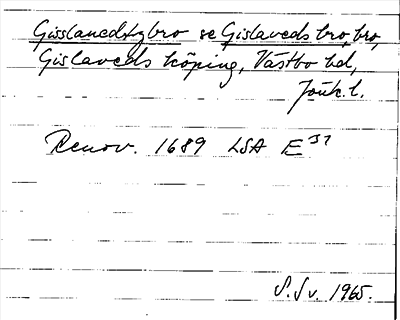 Gisslanedztzbro se Gislaveds bro, bro,
Gislaveds köping, Västbo hd,
Jönk. l.
Renov. 1689 LSA E³¹
S. Sv. 1965.